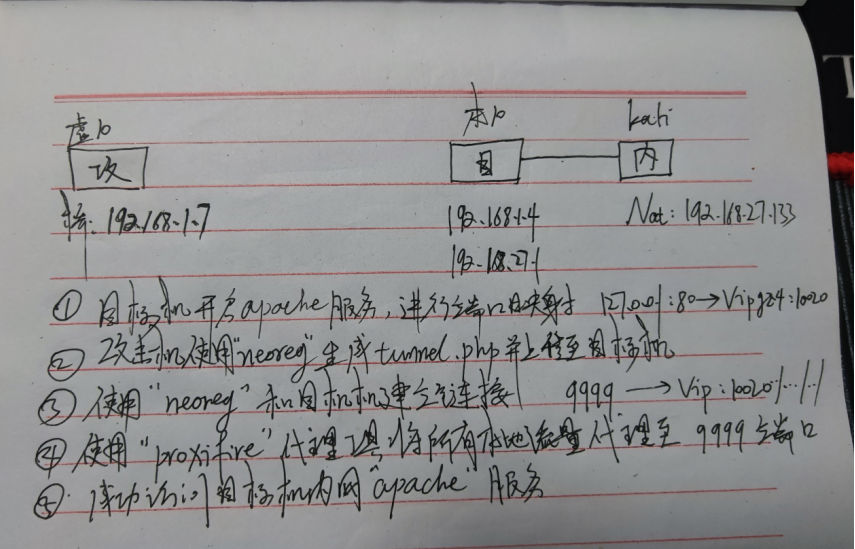 虚10 本10 kali
攻 目 内
桥: 192.168.1.7 192.168.1.4 Nat: 192.168.27.133
192.168.27.1
① 目标机开启apache服务,进行端口映射 127.0.0.1:80→Vipgz4:10020
② 攻击机使用"neoreg"生成tunnel.php并上传至目标机
③ 使用"neoreg"和目标机建立连接 9999→Vip:10020/../.1
④ 使用"proxifire"代理工具,将所有本地流量代理至 9999端口
⑤ 成功访问目标机内网"apache"服务